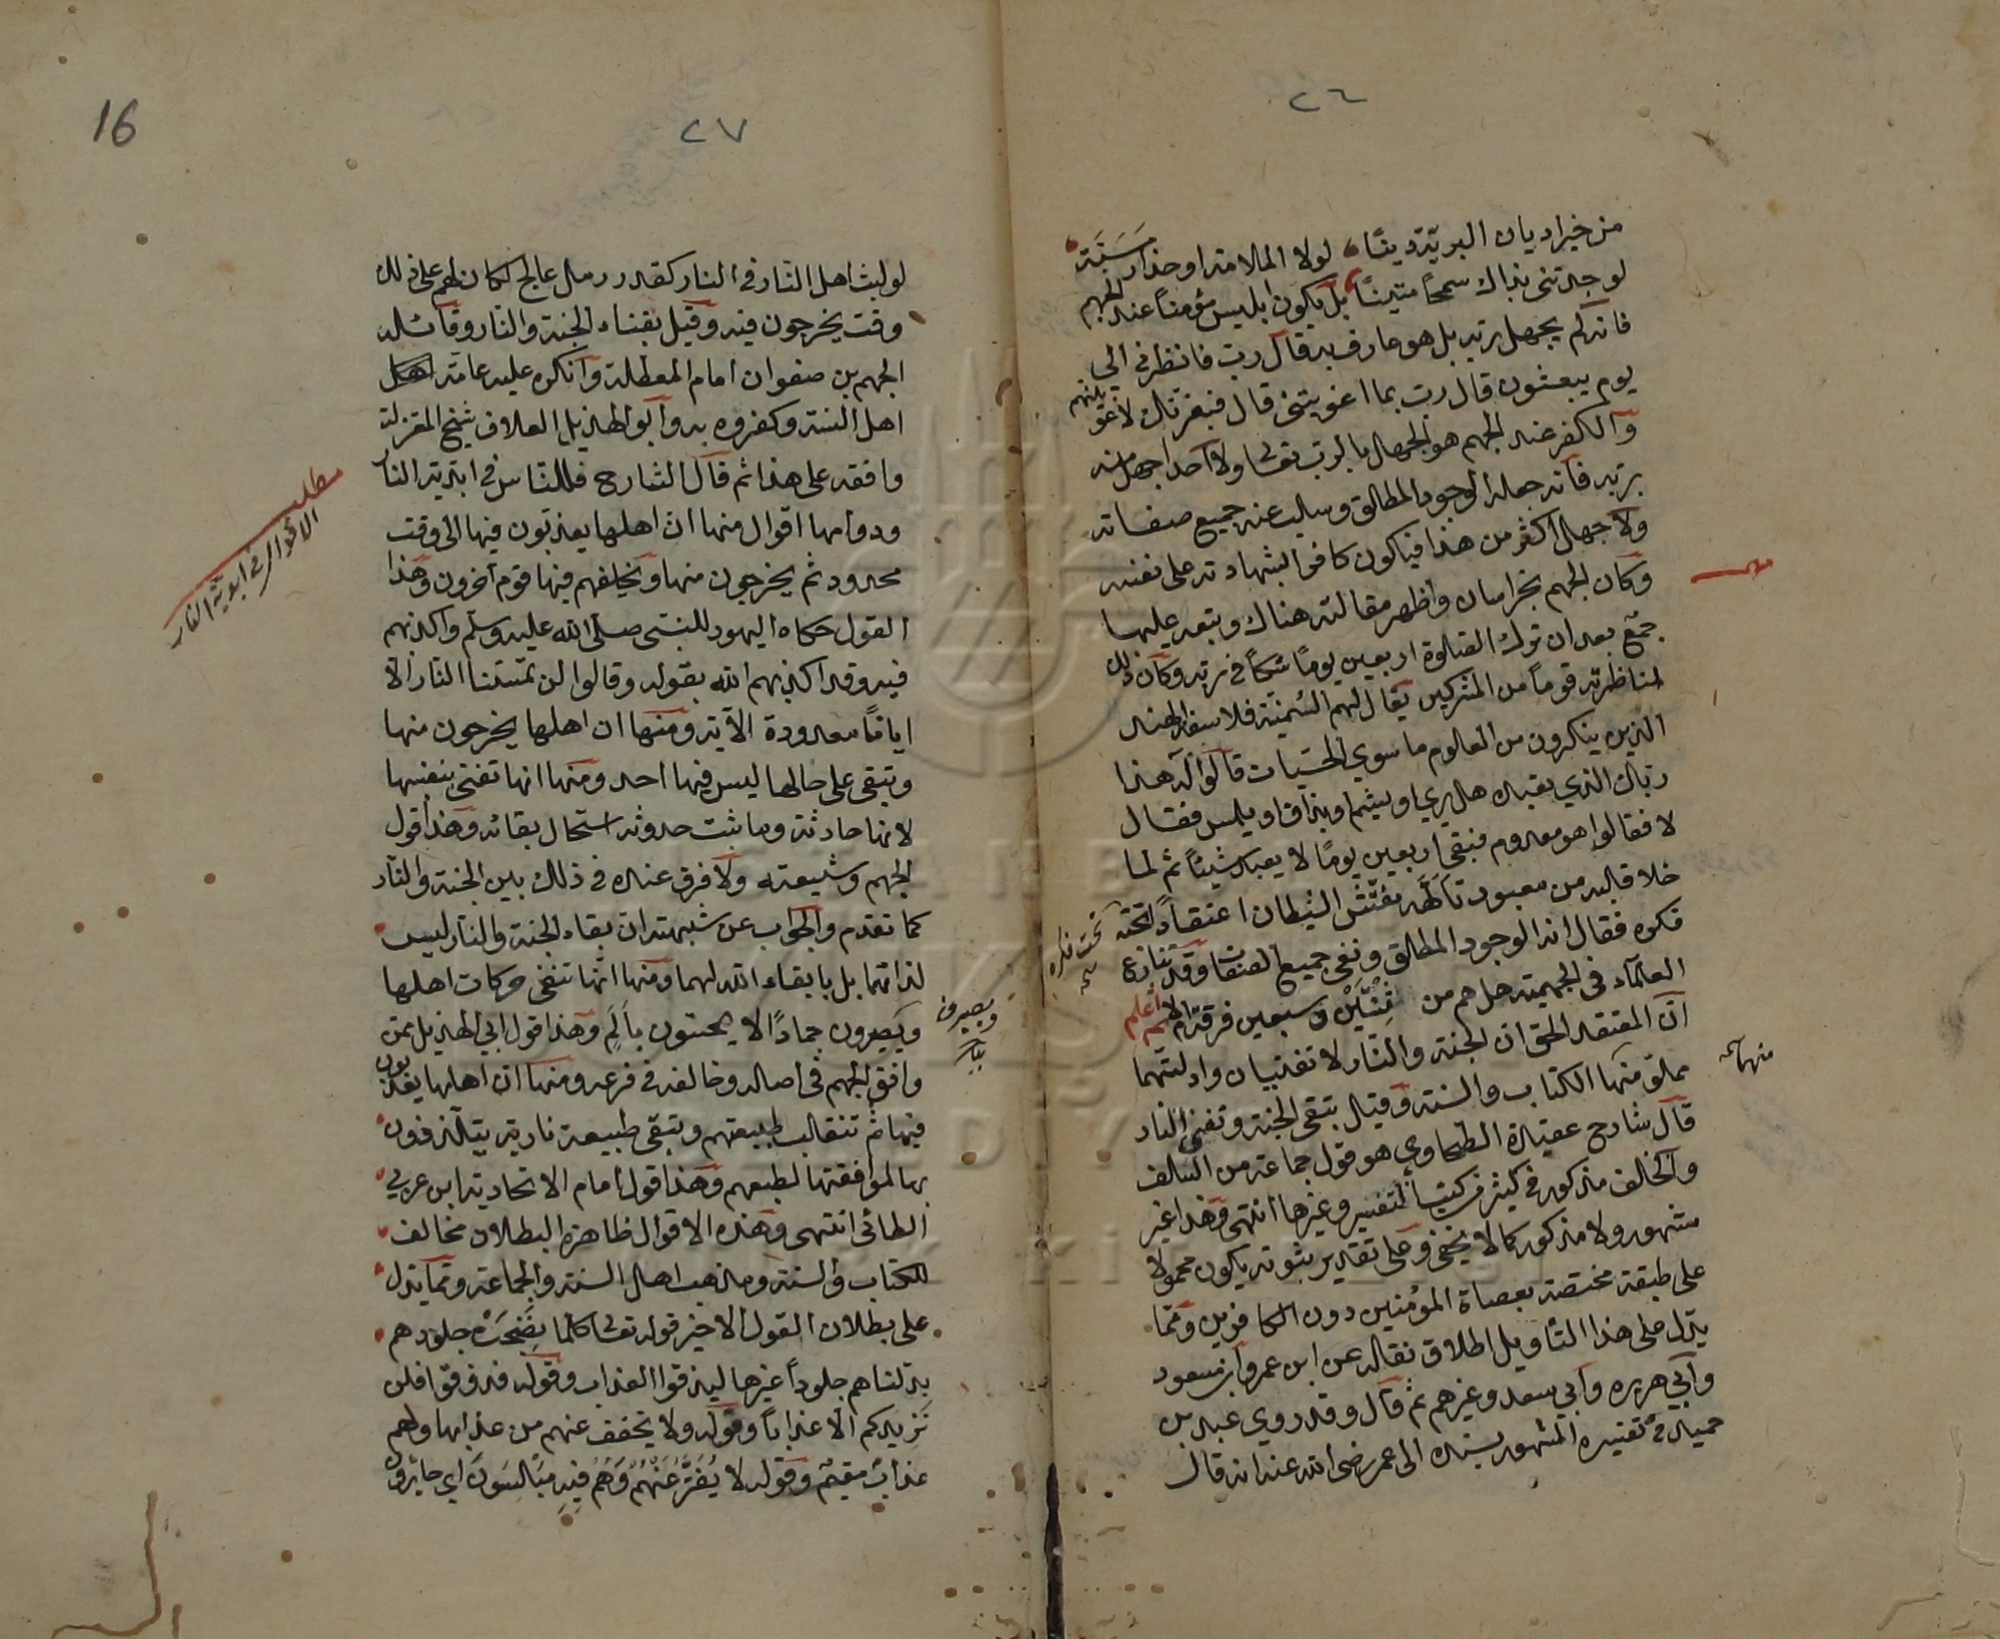 ٢٦
من خير اديان البرية دينًا لولا الملامة او حذار مسبة
لوجدتني بذاك سمحًا متينًا بل يكون ابليس مؤمنًا عند الجهم
فانه لم يجهل ربه بل هو عارف به قال رب فانظرني الى
يوم يبعثون قال رب بما اغويتني قال فبعزتك لاغوينهم
والكفر عند الجهم هو الجهل بالرب تعالى ولا احد اجهل منه
بربه فانه جعله الوجود المطلق وسلب عنه جميع صفاته
ولا جهل اكثر من هذا فيكون كافرا بشهادته على نفسه
وكان الجهم بخراسان واظهر مقالته هناك وتبعه عليها
جمع بعد ان ترك الصلوة اربعين يومًا شكًا في ربه وكان ذلك
لمناظرته قومًا من المشركين يقال لهم السمنية فلاسفة الهند
الذين ينكرون من العلوم ما سوى الحسيات قالوا له هذا
ربك الذي تعبده هل يرى او يشم او يذاق او يلمس فقال
لا فقالوا هو معدوم فبقي اربعين يومًا لا يعبد شيئًا ثم لما
خلا قلبه من معبود تألهه نقش الشيطان اعتقادًا نحته
فكره فقال انه الوجود المطلق ونفى جميع الصفات وقد تنازع
العلماء في الجهمية هل هم من ثنتين وسبعين فرقة ام لا ثم اعلم
ان المعتقد الحق ان الجنة والنار لا تفنيان وادلتهما
مملؤ منها الكتاب والسنة وقيل تبقى الجنة وتفنى النار
قال شارح عقيدة الطحاوي هو قول جماعة من السلف
والخلف مذكور في كثير من كتب التفسير وغيرها انتهى وهذا غير
مشهور ولا مذكور كما لا يخفى وعلى تقدير ثبوته يكون محمولا
على طبقة مختصة بعصاة المؤمنين دون الكافرين ومما
يدل على هذا التأويل اطلاق نقله عن ابن عمر وابن مسعود
وابي هريرة وابي سعد وغيرهم ثم قال وقد روى عبد بن
حميد في تفسيره المشهور بسنده الى عمر رضي الله عنه انه قال
نحت فكره
منها
٢٧
16
لو لبث اهل النار في النار كقدر رمل عالج لكان لهم على ذلك
وقت يخرجون فيه وقيل بفناء الجنة والنار وقائله
الجهم بن صفوان امام المعطلة وانكره عليه عامة
اهل السنة وكفروه به وابو الهذيل العلاف شيخ المعتزلة
وافقه على هذا ثم قال الشارح فللناس في ابدية النار
ودوامها اقوال منها ان اهلها يعذبون فيها الى وقت
محدود ثم يخرجون منها ويخلفهم فيها قوم آخرون وهذا
القول حكاه اليهود للنبي صلى الله عليه وسلم واكذبهم
فيه وقد اكذبهم الله بقوله وقالوا لن تمسنا النار الا
ايامًا معدودة الآية ومنها ان اهلها يخرجون منها
وتبقى على حالها ليس فيها احد ومنها انها تفنى بنفسها
لانها حادثة وما ثبت حدوثه استحال بقائه وهذا قول
الجهم وشيعته ولا فرق عنده في ذلك بين الجنة والنار
كما تقدم والجواب عن شبهته ان بقاء الجنة والنار ليس
لذاتهما بل بابقاء الله لهما ومنها انها تفنى حركات اهلها
ويصيرون جمادًا لا يحسون بألم وهذا قول ابي الهذيل ممن
وافق الجهم في اصله وخالفه في فرعه ومنها ان اهلها يعذبون
فيها ثم تنقلب طبيعتهم وتبقى طبيعة نارية يتلذذون
بها لموافقتها لطبعهم وهذا قول امام الاتحادية ابن عربي
الطائي انتهى وهذه الاقوال ظاهرة البطلان مخالف
للكتاب والسنة ومذهب اهل السنة والجماعة ومما يدل
على بطلان القول الاخير قوله تعالى كلما نضجت جلودهم
بدلناهم جلودًا غيرها ليذقوا العذاب وقوله فذوقوا فلن
نزيدكم الا عذابًا وقوله ولا يخفف عنهم من عذابها ولهم
عذاب مقيم وقوله لا يفتر عنهم وهم فيه مبلسون اي حائرون
مطلب
الاقوال في ابدية النار
ويصيرون